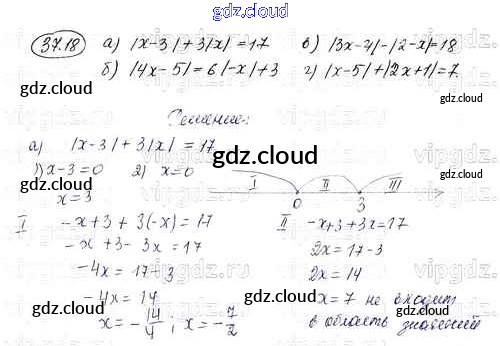 gdz.cloud
37.18 а) |x-3|+3|x|=17 в) |3x-4|-|2-x|=18
gdz.cloud gdz.cloud
б) |4x-5|=6|-x|+3 г) |x-5|+|2x+1|=7.
Решение:
а) |x-3|+3|x|=17
gdz.cloud
1) x-3=0 2) x=0
x=3
I II III
0 3
I -x+3+3(-x)=17
-x+3-3x=17
-4x=17-3
-4x=14
x=-14/4; x=-7/2
II -x+3+3x=17
2x=17-3
2x=14
x=7 не входит
в область значений
gdz.cloud gdz.cloud
gdz.cloud gdz.cloud
vipgdz.ru